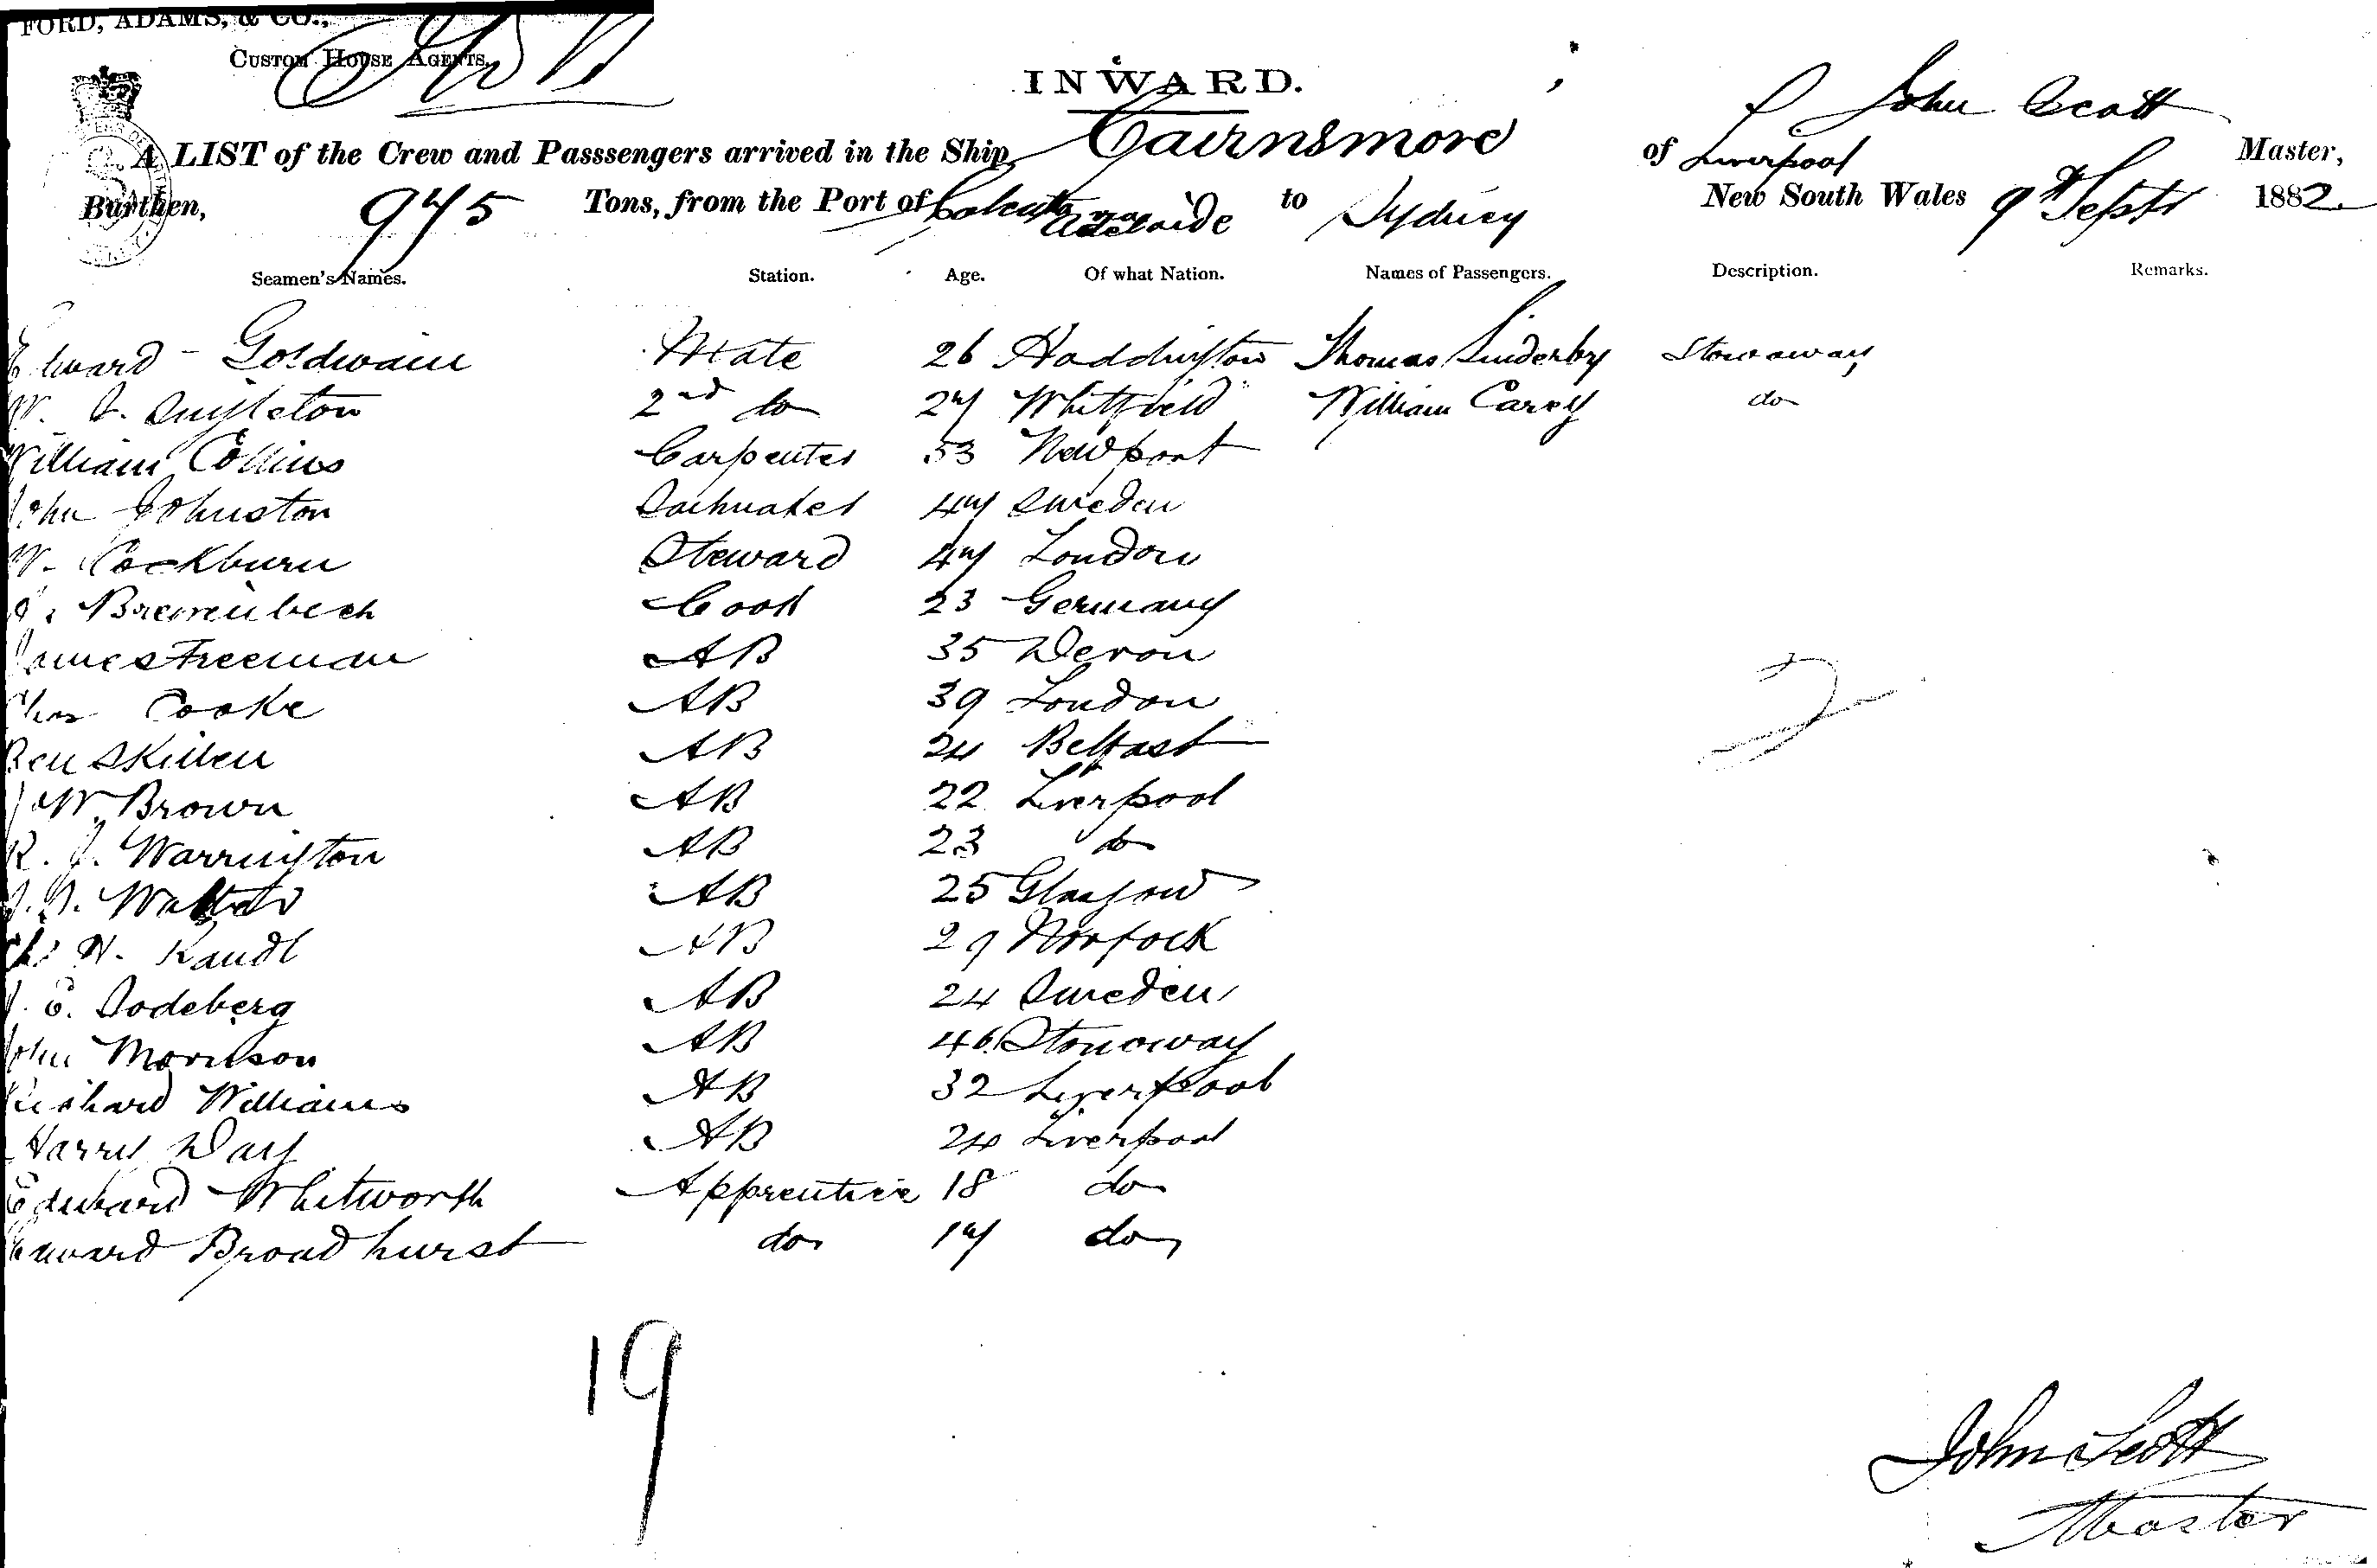 FORD, ADAMS, & CO.,
CUSTOM HOUSE AGENTS.
INWARD.
John Scott
A LIST of the Crew and Passsengers arrived in the Ship Cairnsmore of Liverpool Master,
Burthen, 945 Tons, from the Port of Calcutta Adelaide to Sydney New South Wales 9th Septr 1882
Seamen's Names. Station. Age. Of what Nation. Names of Passengers. Description. Remarks.
Edward Goldwain Mate 26 Haddington Thomas Sinderby Stowaway
W. Singleton 2nd do 27 Whitfield William Carey do
William Collins Carpenter 53 Newport
John Johnston Sailmaker 47 Sweden
W. Cockburn Steward 47 London
Cook 23 Germany
James Freeman AB 35 Devon
Chas Cooke AB 39 London
Ben Skillen AB 24 Belfast
W. Brown AB 22 Liverpool
R. J. Warrington AB 23 do
AB 25 Glasgow
H. Randl AB 29 Norfolk
E. Sodeberg AB 24 Sweden
John Morrison AB 46 Stonoway
Richard Williams AB 32 Liverpool
Harry Day AB 24 Liverpool
Edward Whitworth Apprentice 18 do
Edward Broadhurst do 17 do
19
John Scott
Master